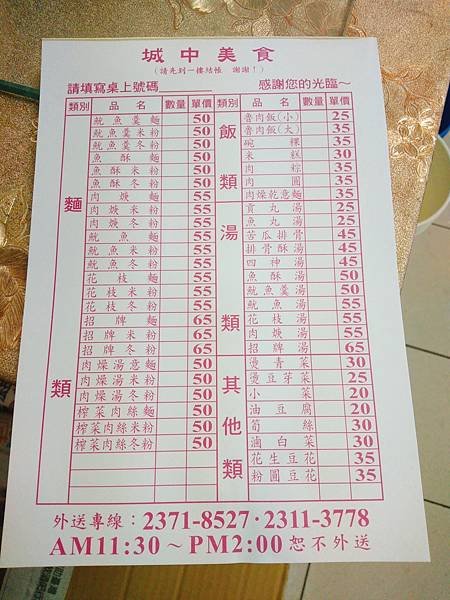 城中美食
(請先到一樓結帳 謝謝!)
請填寫桌上號碼 感謝您的光臨~
類別 品名 數量 單價 類別 品名 數量 單價
麵類
魷魚羹麵 50
魷魚羹米粉 50
魷魚羹冬粉 50
魚酥麵 50
魚酥米粉 50
魚酥冬粉 50
肉焿麵 55
肉焿米粉 55
肉焿冬粉 55
魷魚麵 55
魷魚米粉 55
魷魚冬粉 55
花枝麵 55
花枝米粉 55
花枝冬粉 55
招牌麵 65
招牌米粉 65
招牌冬粉 65
肉燥湯意麵 50
肉燥湯米粉 50
肉燥湯冬粉 50
榨菜肉絲麵 50
榨菜肉絲米粉 50
榨菜肉絲冬粉 50
飯類
魯肉飯(小) 25
魯肉飯(大) 35
碗粿 35
米糕 30
肉粽 35
肉圓 35
肉燥乾意麵 35
湯類
貢丸湯 25
魚丸湯 25
苦瓜排骨 45
排骨酥湯 45
四神湯 45
魚酥湯 50
魷魚羹湯 50
魷魚湯 55
花枝湯 55
肉焿湯 55
招牌湯 65
其他類
燙青菜 30
燙豆芽菜 25
小菜 20
油豆腐 20
筍絲 30
滷白菜 30
花生豆花 35
粉圓豆花 35
外送專線:2371-8527·2311-3778
AM11:30~PM2:00恕不外送